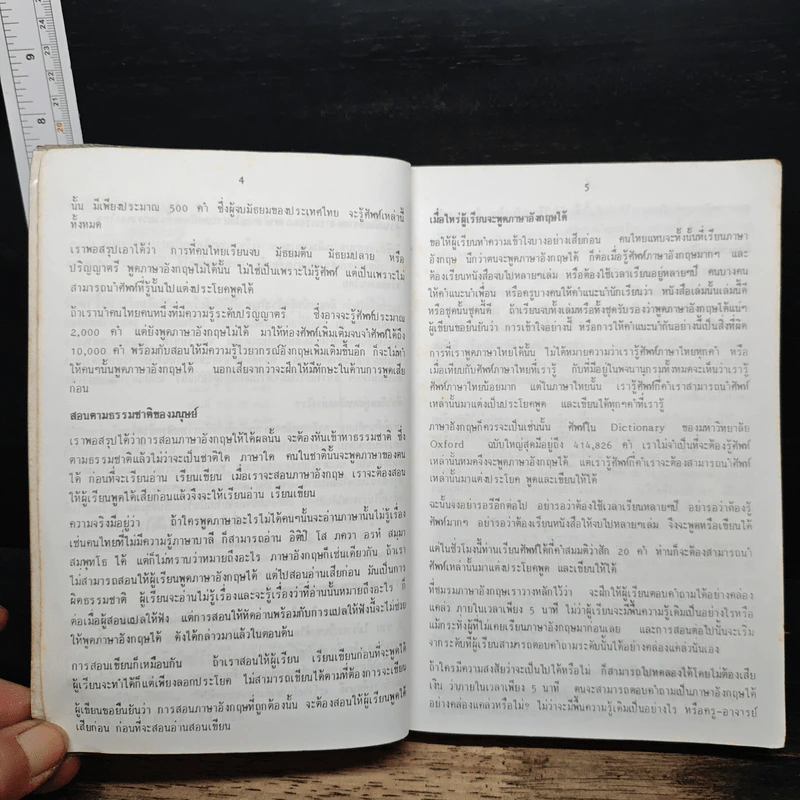 4
นั้น มีเพียงประมาณ 500 คำ ซึ่งผู้จบมัธยมของประเทศไทย จะรู้ศัพท์เหล่านี้
ทั้งหมด
เราพอสรุปเอาได้ว่า การที่คนไทยเรียนจบ มัธยมต้น มัธยมปลาย หรือ
ปริญญาตรี พูดภาษาอังกฤษไม่ได้นั้น ไม่ใช่เป็นเพราะไม่รู้ศัพท์ แต่เป็นเพราะไม่
สามารถนำศัพท์ที่รู้นั้นไปแต่งประโยคพูดได้
ถ้าเรานำคนไทยคนหนึ่งที่มีความรู้ระดับปริญญาตรี ซึ่งอาจจะรู้ศัพท์ประมาณ
2,000 คำ แต่ยังพูดภาษาอังกฤษไม่ได้ มาให้ท่องศัพท์เพิ่มเติมจนจำศัพท์ได้ถึง
10,000 คำ พร้อมกับสอนให้มีความรู้ไวยากรณ์อังกฤษเพิ่มเติมขึ้นอีก ก็จะไม่ทำ
ให้คนๆนั้นพูดภาษาอังกฤษได้ นอกเสียจากว่าจะฝึกให้มีทักษะในด้านการพูดเสีย
ก่อน
สอนตามธรรมชาติของมนุษย์
เราพอสรุปได้ว่าการสอนภาษาอังกฤษให้ได้ผลนั้น จะต้องหันเข้าหาธรรมชาติ ซึ่ง
ตามธรรมชาติแล้วไม่ว่าจะเป็นชาติใด ภาษาใด คนในชาตินั้นจะพูดภาษาของตน
ได้ ก่อนที่จะเรียนอ่าน เรียนเขียน เมื่อเราจะสอนภาษาอังกฤษ เราจะต้องสอน
ให้ผู้เรียนพูดได้เสียก่อนแล้วจึงจะให้เรียนอ่าน เรียนเขียน
ความจริงมีอยู่ว่า ถ้าใครพูดภาษาอะไรไม่ได้คนๆนั้นจะอ่านภาษานั้นไม่รู้เรื่อง
เช่นคนไทยที่ไม่มีความรู้ภาษาบาลี ก็สามารถอ่าน อิติปิ โส ภควา อรหํ สมฺมา
สมพุทโธ ได้ แต่ก็ไม่ทราบว่าหมายถึงอะไร ภาษาอังกฤษก็เช่นเดียวกัน ถ้าเรา
ไม่สามารถสอนให้ผู้เรียนพูดภาษาอังกฤษได้ แต่ไปสอนอ่านเสียก่อน มันเป็นการ
ผิดธรรมชาติ ผู้เรียนจะอ่านไม่รู้เรื่องและจะรู้เรื่องว่าที่อ่านนั้นหมายถึงอะไร ก็
ต่อเมื่อผู้สอนแปลให้ฟัง แต่การสอนให้หัดอ่านพร้อมกับการแปลให้ฟังนี้จะไม่ช่วย
ให้พูดภาษาอังกฤษได้ ดังได้กล่าวมาแล้วในตอนต้น
การสอนเขียนก็เหมือนกัน ถ้าเราสอนให้ผู้เรียน เรียนเขียนก่อนที่จะพูดได้
ผู้เรียนจะทำได้ก็แต่เพียงลอกประโยค ไม่สามารถเขียนได้ตามที่ต้องการจะเขียน
ผู้เขียนขอยืนยันว่า การสอนภาษาอังกฤษที่ถูกต้องนั้น จะต้องสอนให้ผู้เรียนพูดได้
เสียก่อน ก่อนที่จะสอนอ่านสอนเขียน
5
เมื่อไหร่ผู้เรียนจะพูดภาษาอังกฤษได้
ขอให้ผู้เรียนทำความเข้าใจบางอย่างเสียก่อน คนไทยแทบจะทั้งนั้นที่เรียนภาษา
อังกฤษ นึกว่าตนจะพูดภาษาอังกฤษได้ ก็ต่อเมื่อรู้ศัพท์ภาษาอังกฤษมากๆ และ
ต้องเรียนหนังสือจบไปหลายๆเล่ม หรือต้องใช้เวลาเรียนอยู่หลายๆปี คนบางคน
ให้คำแนะนำเพื่อน หรือครูบางคนให้คำแนะนำนักเรียนว่า หนังสือเล่มนั้นเล่มนี้ดี
หรือชุดนั้นชุดนี้ดี ถ้าเรียนจบทั้งเล่มหรือทั้งชุดรับรองว่าพูดภาษาอังกฤษได้แน่ๆ
ผู้เขียนขอยืนยันว่า การเข้าใจอย่างนี้ หรือการให้คำแนะนำกันอย่างนี้เป็นสิ่งที่ผิด
การที่เราพูดภาษาไทยได้นั้น ไม่ได้หมายความว่าเรารู้ศัพท์ภาษาไทยทุกคำ หรือ
เมื่อเทียบกับศัพท์ภาษาไทยที่เรารู้ กับที่มีอยู่ในพจนานุกรมทั้งหมดจะเห็นว่าเรารู้
ศัพท์ภาษาไทยน้อยมาก แต่ในภาษาไทยนั้น เรารู้ศัพท์กี่คำเราสามารถนำศัพท์
เหล่านั้นมาแต่งเป็นประโยคพูด และเขียนได้ทุกๆคำที่เรารู้
ภาษาอังกฤษก็ควรจะเป็นเช่นนั้น ศัพท์ใน Dictionary ของมหาวิทยาลัย
Oxford ฉบับใหญ่สุดมีอยู่ถึง 414,826 คำ เราไม่จำเป็นที่จะต้องรู้ศัพท์
เหล่านั้นหมดจึงจะพูดภาษาอังกฤษได้ แต่เรารู้ศัพท์กี่คำเราจะต้องสามารถนำศัพท์
เหล่านั้นมาแต่งประโยค พูดและเขียนให้ได้
ฉะนั้นจงอย่ารอรีอีกต่อไป อย่ารอว่าต้องใช้เวลาเรียนหลายๆปี อย่ารอว่าต้องรู้
ศัพท์มากๆ อย่ารอว่าต้องเรียนหนังสือให้จบไปหลายๆเล่ม จึงจะพูดหรือเขียนได้
แต่ในชั่วโมงนี้ท่านเรียนศัพท์ได้กี่คำสมมติว่าสัก 20 คำ ท่านก็จะต้องสามารถนำ
ศัพท์เหล่านั้นมาแต่งประโยคพูด และเขียนให้ได้
ที่ชมรมภาษาอังกฤษเราวางหลักไว้ว่า จะฝึกให้ผู้เรียนตอบคำถามได้อย่างคล่อง
แคล่ว ภายในเวลาเพียง 5 นาที ไม่ว่าผู้เรียนจะมีพื้นความรู้เดิมเป็นอย่างไรหรือ
แม้กระทั่งผู้ที่ไม่เคยเรียนภาษาอังกฤษมาก่อนเลย และการสอนต่อไปนั้นจะเริ่ม
จากระดับที่ผู้เรียนสามารถตอบคำถามระดับนั้นได้อย่างคล่องแคล่วนั่นเอง
ถ้าใครมีความสงสัยว่าจะเป็นไปได้หรือไม่ ก็สามารถไปทดลองได้โดยไม่ต้องเสีย
เงิน ว่าภายในเวลาเพียง 5 นาที ตนจะสามารถตอบคำถามเป็นภาษาอังกฤษได้
อย่างคล่องแคล่วหรือไม่? ไม่ว่าจะมีพื้นความรู้เดิมเป็นอย่างไร หรือครู-อาจารย์